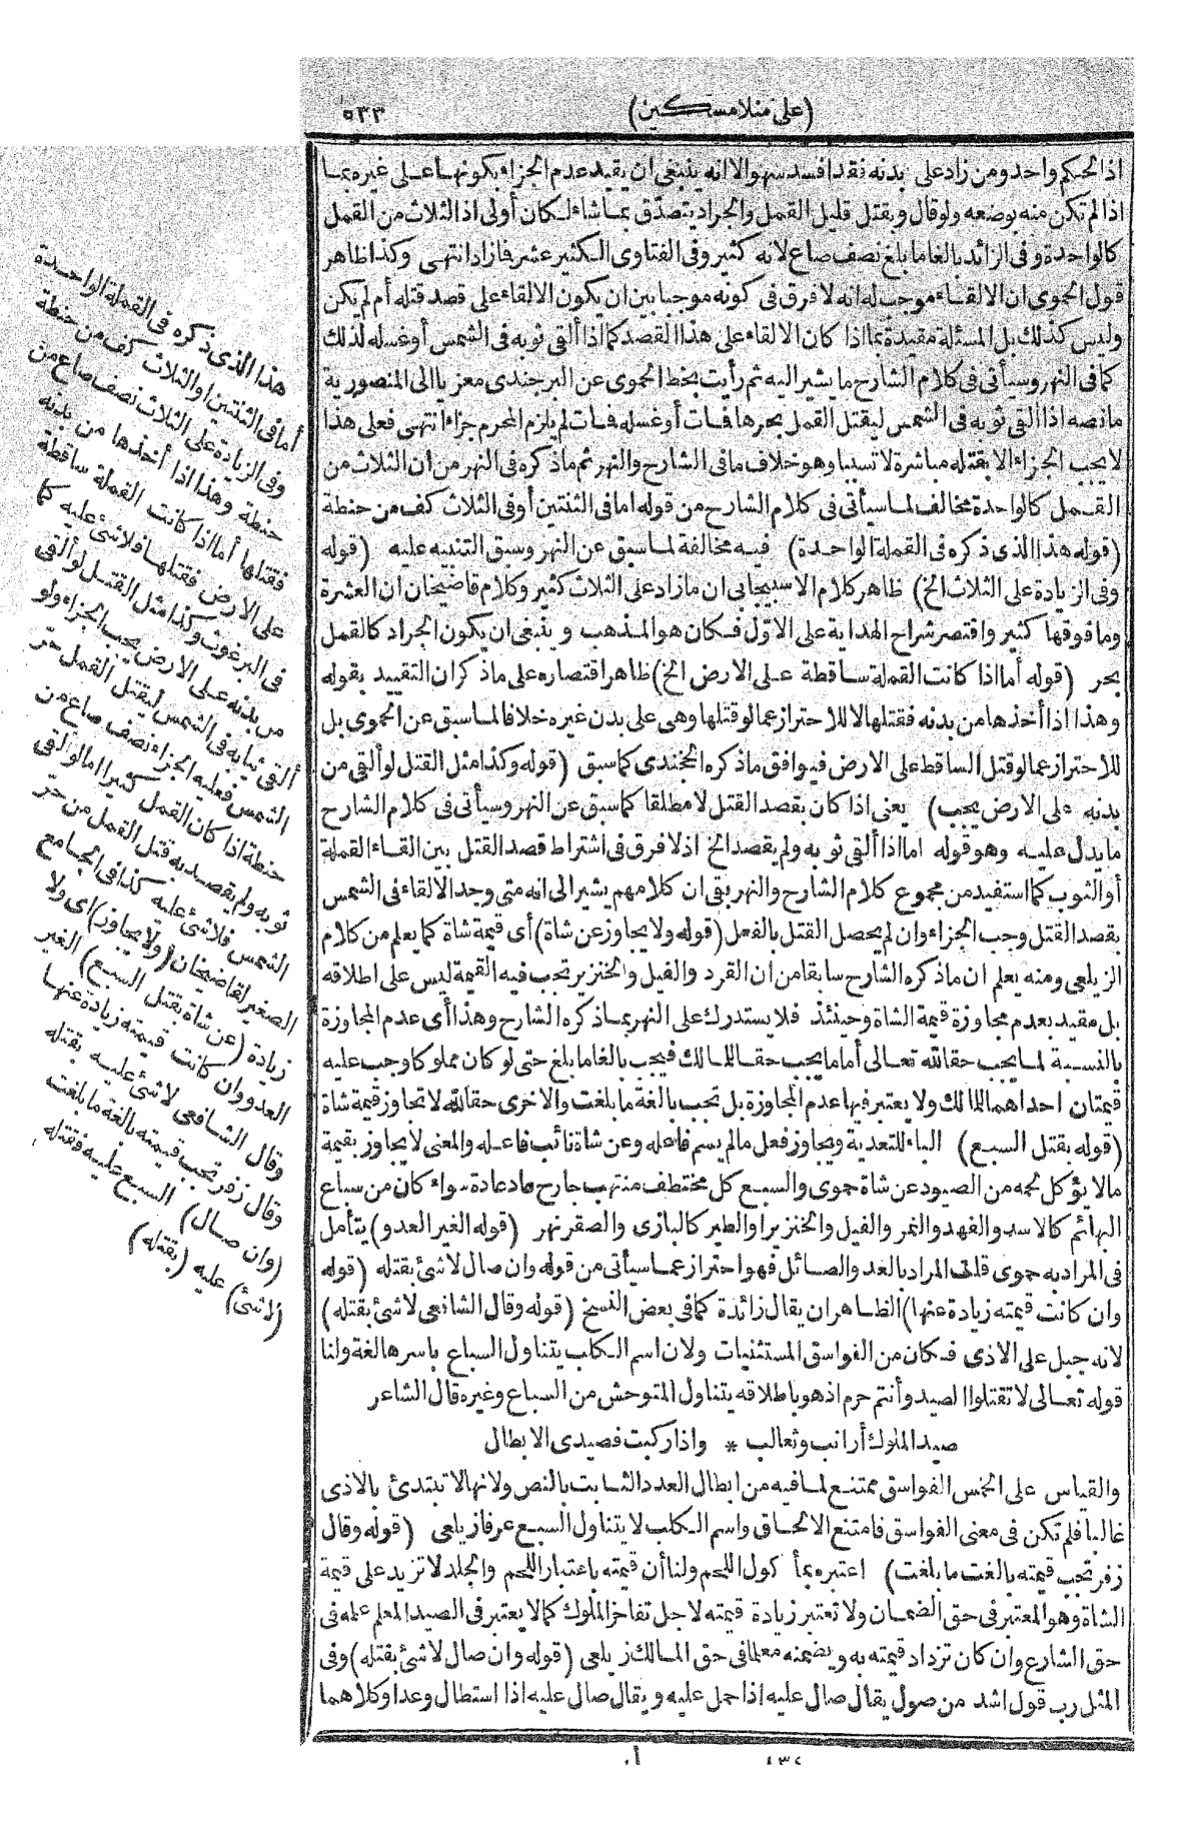 (على منلا مسكين)
٥٣٣
اذ الحكم واحد ومن زاد على بدنه فقد افسد سهوا الا انه ينبغى ان يقيد عدم الجزاء بكونها على غيره بما
اذا لم تكن منه بوضعه ولو قال وبقتل قليل القمل والجراد يتصدّق بما شاء لكان أولى اذ الثلاث من القمل
كالواحدة وفى الزائد بالغا ما بلغ نصف صاع لانه كثير وفى الفتاوى الكثير عشر فازاد انتهى وكذا ظاهر
قول الحموى ان الالقاء موجب له انه لا فرق فى كونه موجبا بين ان يكون الالقاء على قصد قتله أم لم يكن
وليس كذلك بل المسئلة مقيدة بما اذا كان الالقاء على هذا القصد كما اذا ألقى ثوبه فى الشمس أو غسله لذلك
كما فى النهر وسيأتى فى كلام الشارح ما يشير اليه ثم رأيت بخط الحموى عن البرجندى معزيا الى المنصورية
ما نصه اذا القى ثوبه فى الشمس ليقتل القمل بحرها فمات أو غسله فمات لم يلزم المحرم جزاء انتهى فعلى هذا
لا يجب الجزاء الا بقتله مباشرة لا تسببا وهو خلاف ما فى الشارح والنهر ثم ما ذكره فى النهر من ان الثلاث من
القمل كالواحدة مخالف لما سيأتى فى كلام الشارح من قوله اما فى الثنتين أو فى الثلاث كف من حنطة
(قوله هذا الذى ذكره فى القملة الواحدة) فيه مخالفة لما سبق عن النهر وسبق التنبيه عليه (قوله
وفى الزيادة على الثلاث الخ) ظاهر كلام الاسبيجابى ان ما زاد على الثلاث كثير وكلام قاضيخان ان العشرة
وما فوقها كثير واقتصر شراح الهداية على الاوّل فكان هو المذهب وينبغى ان يكون الجراد كالقمل
بحر (قوله أما اذا كانت القملة ساقطة على الارض الخ) ظاهر اقتصاره على ما ذكر ان التقييد بقوله
وهذا اذا أخذها من بدنه فقتلها لا للاحتراز عما لو قتلها وهى على بدن غيره خلافا لما سبق عن الحموى بل
للاحتراز عما لو قتل الساقط على الارض فيوافق ما ذكره الخجندى كما سبق (قوله وكذا مثل القتل لو ألقى من
بدنه على الارض يجب) يعنى اذا كان بقصد القتل لا مطلقا كما سبق عن النهر وسيأتى فى كلام الشارح
ما يدل عليه وهو قوله اما اذا ألقى ثوبه ولم يقصد الخ اذ لا فرق فى اشتراط قصد القتل بين القاء القملة
أو الثوب كما استفيد من مجموع كلام الشارح والنهر بقى ان كلامهم يشير الى انه متى وجد الالقاء فى الشمس
بقصد القتل وجب الجزاء وان لم يحصل القتل بالفعل (قوله ولا يجاوز عن شاة) أى قيمة شاة كما يعلم من كلام
الزيلعى ومنه يعلم ان ما ذكره الشارح سابقا من ان القرد والفيل والخنزير تجب فيه القيمة ليس على اطلاقه
بل مقيد بعدم مجاوزة قيمة الشاة وحينئذ فلا يستدرك على النهر بما ذكره الشارح وهذا أى عدم المجاوزة
بالنسبة لما يجب حقا لله تعالى أما ما يجب حقا للمالك فيجب بالغا ما بلغ حتى لو كان مملوكا وجب عليه
قيمتان احداهما للمالك ولا يعتبر فيها عدم المجاوزة بل تجب بالغة ما بلغت والاخرى حقا لله لا تجاوز قيمة شاة
(قوله بقتل السبع) الباء للتعدية ويجاوز فعل ما لم يسم فاعله وعن شاة نائب فاعله والمعنى لا يجاوز بقيمة
ما لا يؤكل لحمه من الصيود عن شاة حموى والسبع كل مختطف منتهب جارح عاد عادة سواء كان من سباع
البهائم كالاسد والفهد والنمر والفيل والخنزير او الطير كالبازى والصقر نهر (قوله الغير العدو) يتأمل
فى المراد به حموى قلت المراد بالعدو الصائل فهو احتراز عما سيأتى من قوله وان صال لا شئ بقتله (قوله
وان كانت قيمته زيادة عنها) الظاهر ان يقال زائدة كما فى بعض النسخ (قوله وقال الشافعى لا شئ بقتله)
لانه جبل على الاذى فكان من الفواسق المستثنيات ولان اسم الكلب يتناول السباع باسرها لغة ولنا
قوله تعالى لا تقتلوا الصيد وأنتم حرم اذ هو باطلاقه يتناول المتوحش من السباع وغيره قال الشاعر
صيد الملوك أرانب وثعالب * واذا ركبت فصيدى الابطال
والقياس على الخمس الفواسق ممتنع لما فيه من ابطال العدد الثابت بالنص ولانها لا تبتدئ بالاذى
غالبا فلم تكن فى معنى الفواسق فامتنع الالحاق واسم الكلب لا يتناول السبع عرفا زيلعى (قوله وقال
زفر تجب قيمته بالغت ما بلغت) اعتبره بمأكول اللحم ولنا أن قيمته باعتبار اللحم والجلد لا تزيد على قيمة
الشاة وهو المعتبر فى حق الضمان ولا تعتبر زيادة قيمته لاجل تفاخر الملوك كما لا يعتبر فى الصيد المعلم علمه فى
حق الشارع وان كان تزداد قيمته به ويضمنه معلما فى حق المالك زيلعى (قوله وان صال لا شئ بقتله) وفى
المثل رب قول اشد من صول يقال صال عليه اذا حمل عليه ويقال صال عليه اذا استطال وعدا وكلاهما
هذا الذى ذكره فى القملة الواحدة
أما فى الثنتين او الثلاث كف من حنطة
وفى الزيادة على الثلاث نصف صاع من
حنطة وهذا اذا أخذها من بدنه
فقتلها أما اذا كانت القملة ساقطة
على الارض فقتلها فلا شئ عليه كما
فى البرغوث وكذا مثل القتل لو ألقى
من بدنه على الارض يجب الجزاء ولو
ألقى ثيابه فى الشمس ليقتل القمل حرّ
الشمس فعليه الجزاء نصف صاع من
حنطة اذا كان القمل كثيرا اما لو القى
ثوبه ولم يقصد به قتل القمل من حرّ
الشمس فلا شئ عليه كذا فى الجامع
الصغير لقاضيخان (ولا يجاوز) اى ولا
زيادة (عن شاة بقتل السبع) الغير
العدو وان كانت قيمته زيادة عنها
وقال الشافعى لا شئ عليه بقتله
وقال زفر تجب قيمته بالغة ما بلغت
(وان صال) السبع عليه فقتله
(لا شئ) عليه (بقتله)